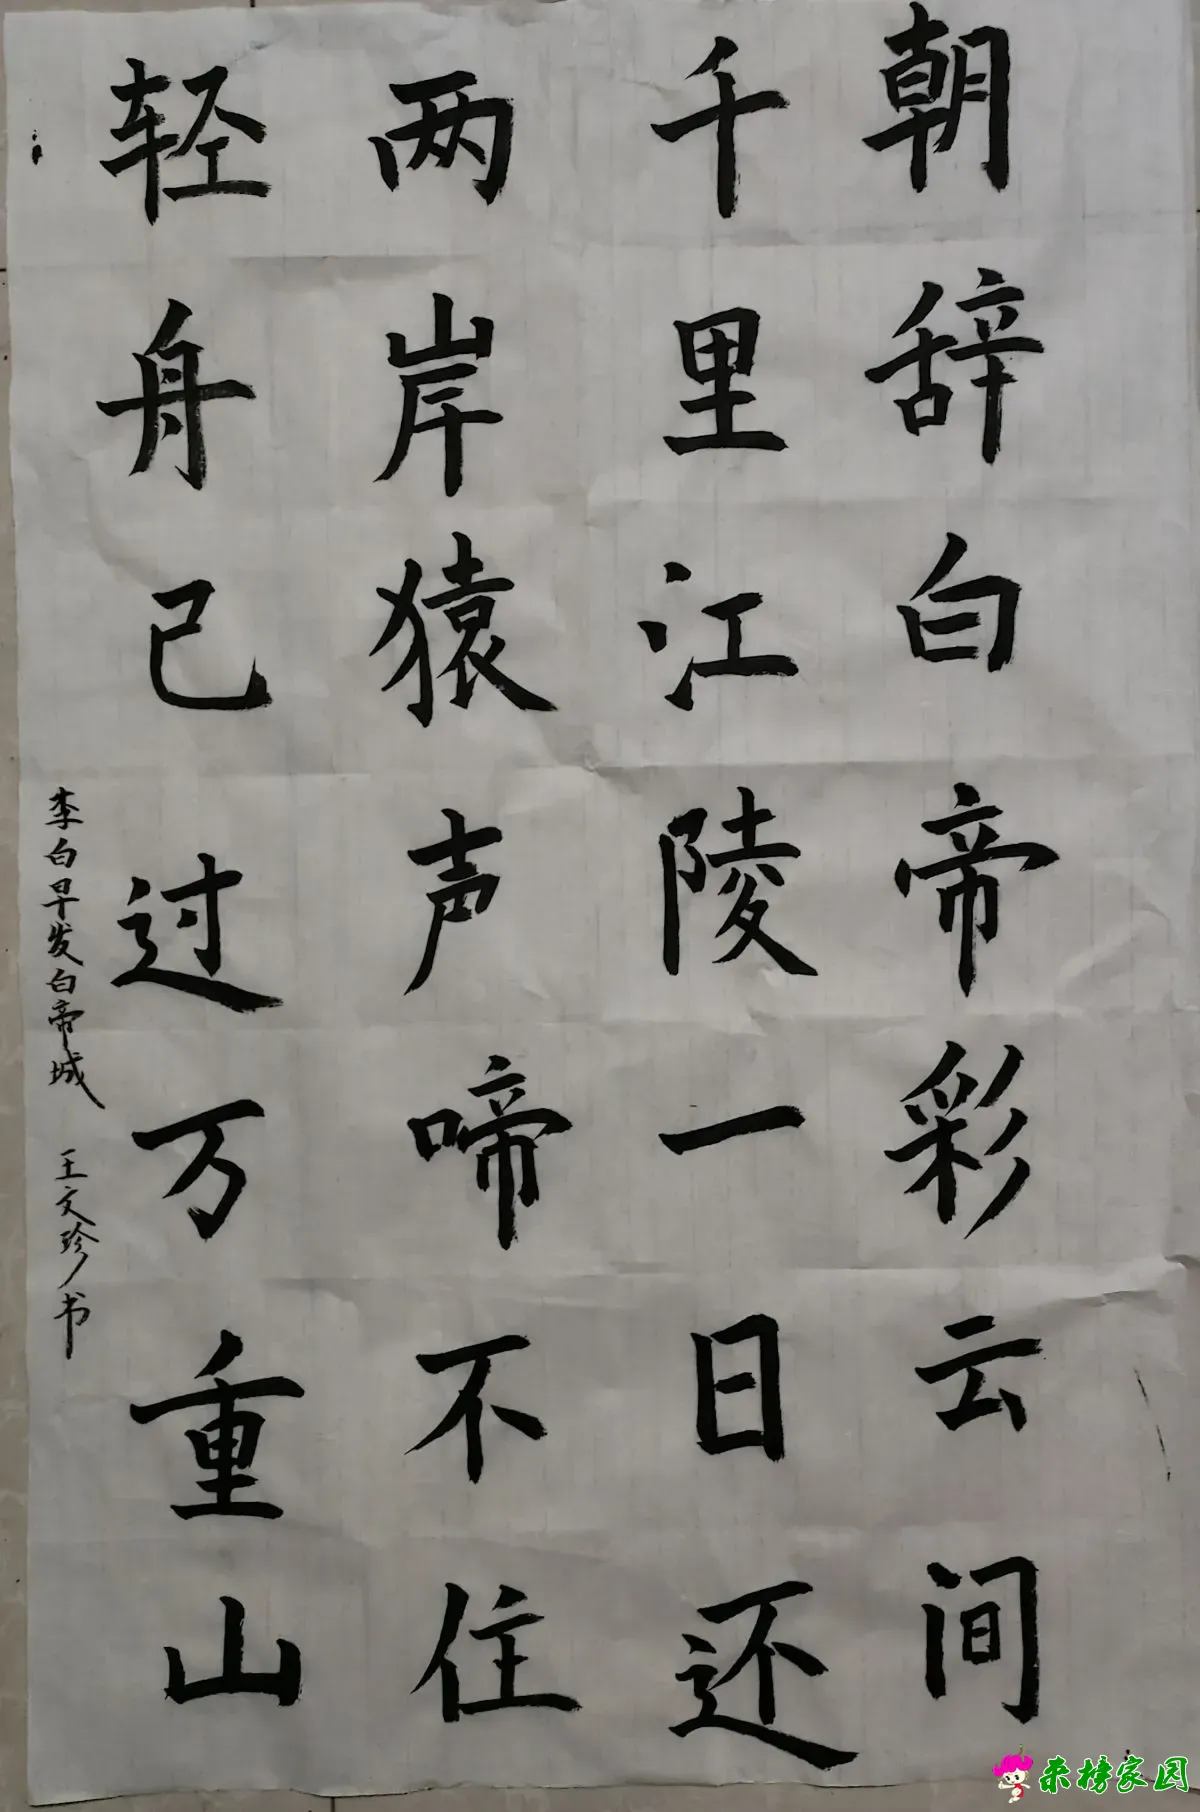 朝辞白帝彩云间
千里江陵一日还
两岸猿声啼不住
轻舟已过万重山
李白早发白帝城 王文珍书
来榜家园